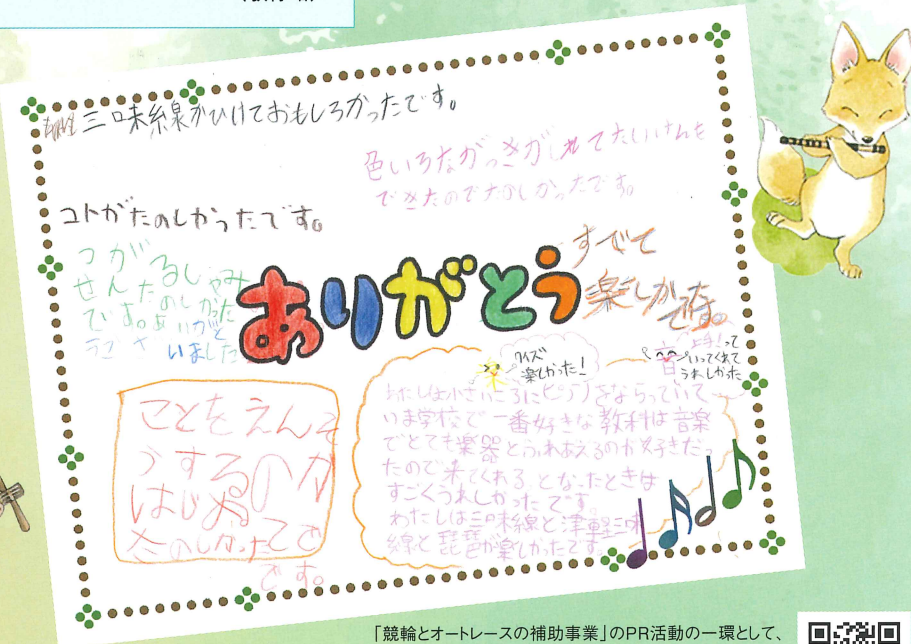 三味線がひけておもしろかったです。
色いろながっきがしれてたいけんを
できたのでたのしかったです。
コトがたのしかったです。
つがるしゃみ
せんたのしかった
です。ありがと
うござ
いました
ありがとう
すべて
楽しかったです。
クイズ
楽しかった!
上手くって
いってくれて
うれしかった
ことをえんそ
うするのが
はじめ
たのしかったでで
です。
わたしは小さいころにピアノをならっていて
いま学校で一番好きな教科は音楽
でとても楽器とふれあえるのが好きだっ
たので来てくれるとなったときは
すごくうれしかったです。
わたしは三味線と津軽三味
線と琵琶が楽しかったです。
「競輪とオートレースの補助事業」のPR活動の一環として、